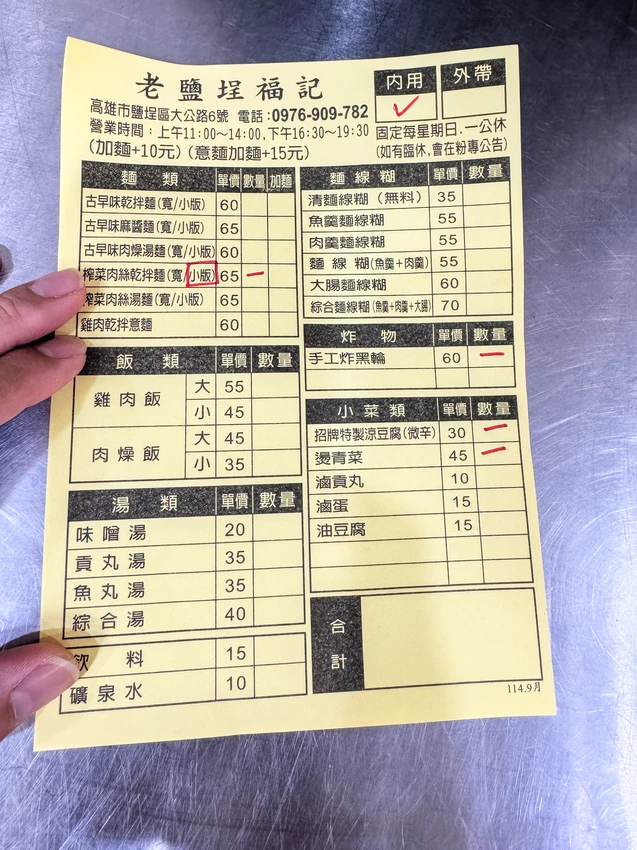 老鹽埕福記
內用
外帶
✓
高雄市鹽埕區大公路6號 電話:0976-909-782
營業時間:上午11:00~14:00,下午16:30~19:30
(加麵+10元)(意麵加麵+15元)
固定每星期日.一公休
(如有臨休,會在粉專公告)
麵 類 單價 數量 加麵
古早味乾拌麵(寬/小版) 60
古早味麻醬麵(寬/小版) 65
古早味肉燥湯麵(寬/小版) 60
榨菜肉絲乾拌麵(寬/小版) 65 一
榨菜肉絲湯麵(寬/小版) 65
雞肉乾拌意麵 60
飯 類 單價 數量
雞肉飯 大 55
小 45
肉燥飯 大 45
小 35
湯 類 單價 數量
味噌湯 20
貢丸湯 35
魚丸湯 35
綜合湯 40
飲 料 15
礦泉水 10
麵線糊 單價 數量
清麵線糊(無料) 35
魚羹麵線糊 55
肉羹麵線糊 55
麵線糊(魚羹+肉羹) 55
大腸麵線糊 60
綜合麵線糊(魚羹+肉羹+大腸) 70
炸 物 單價 數量
手工炸黑輪 60 一
小菜類 單價 數量
招牌特製涼豆腐(微辛) 30 一
燙青菜 45 一
滷貢丸 10
滷蛋 15
油豆腐 15
合計
114.9月